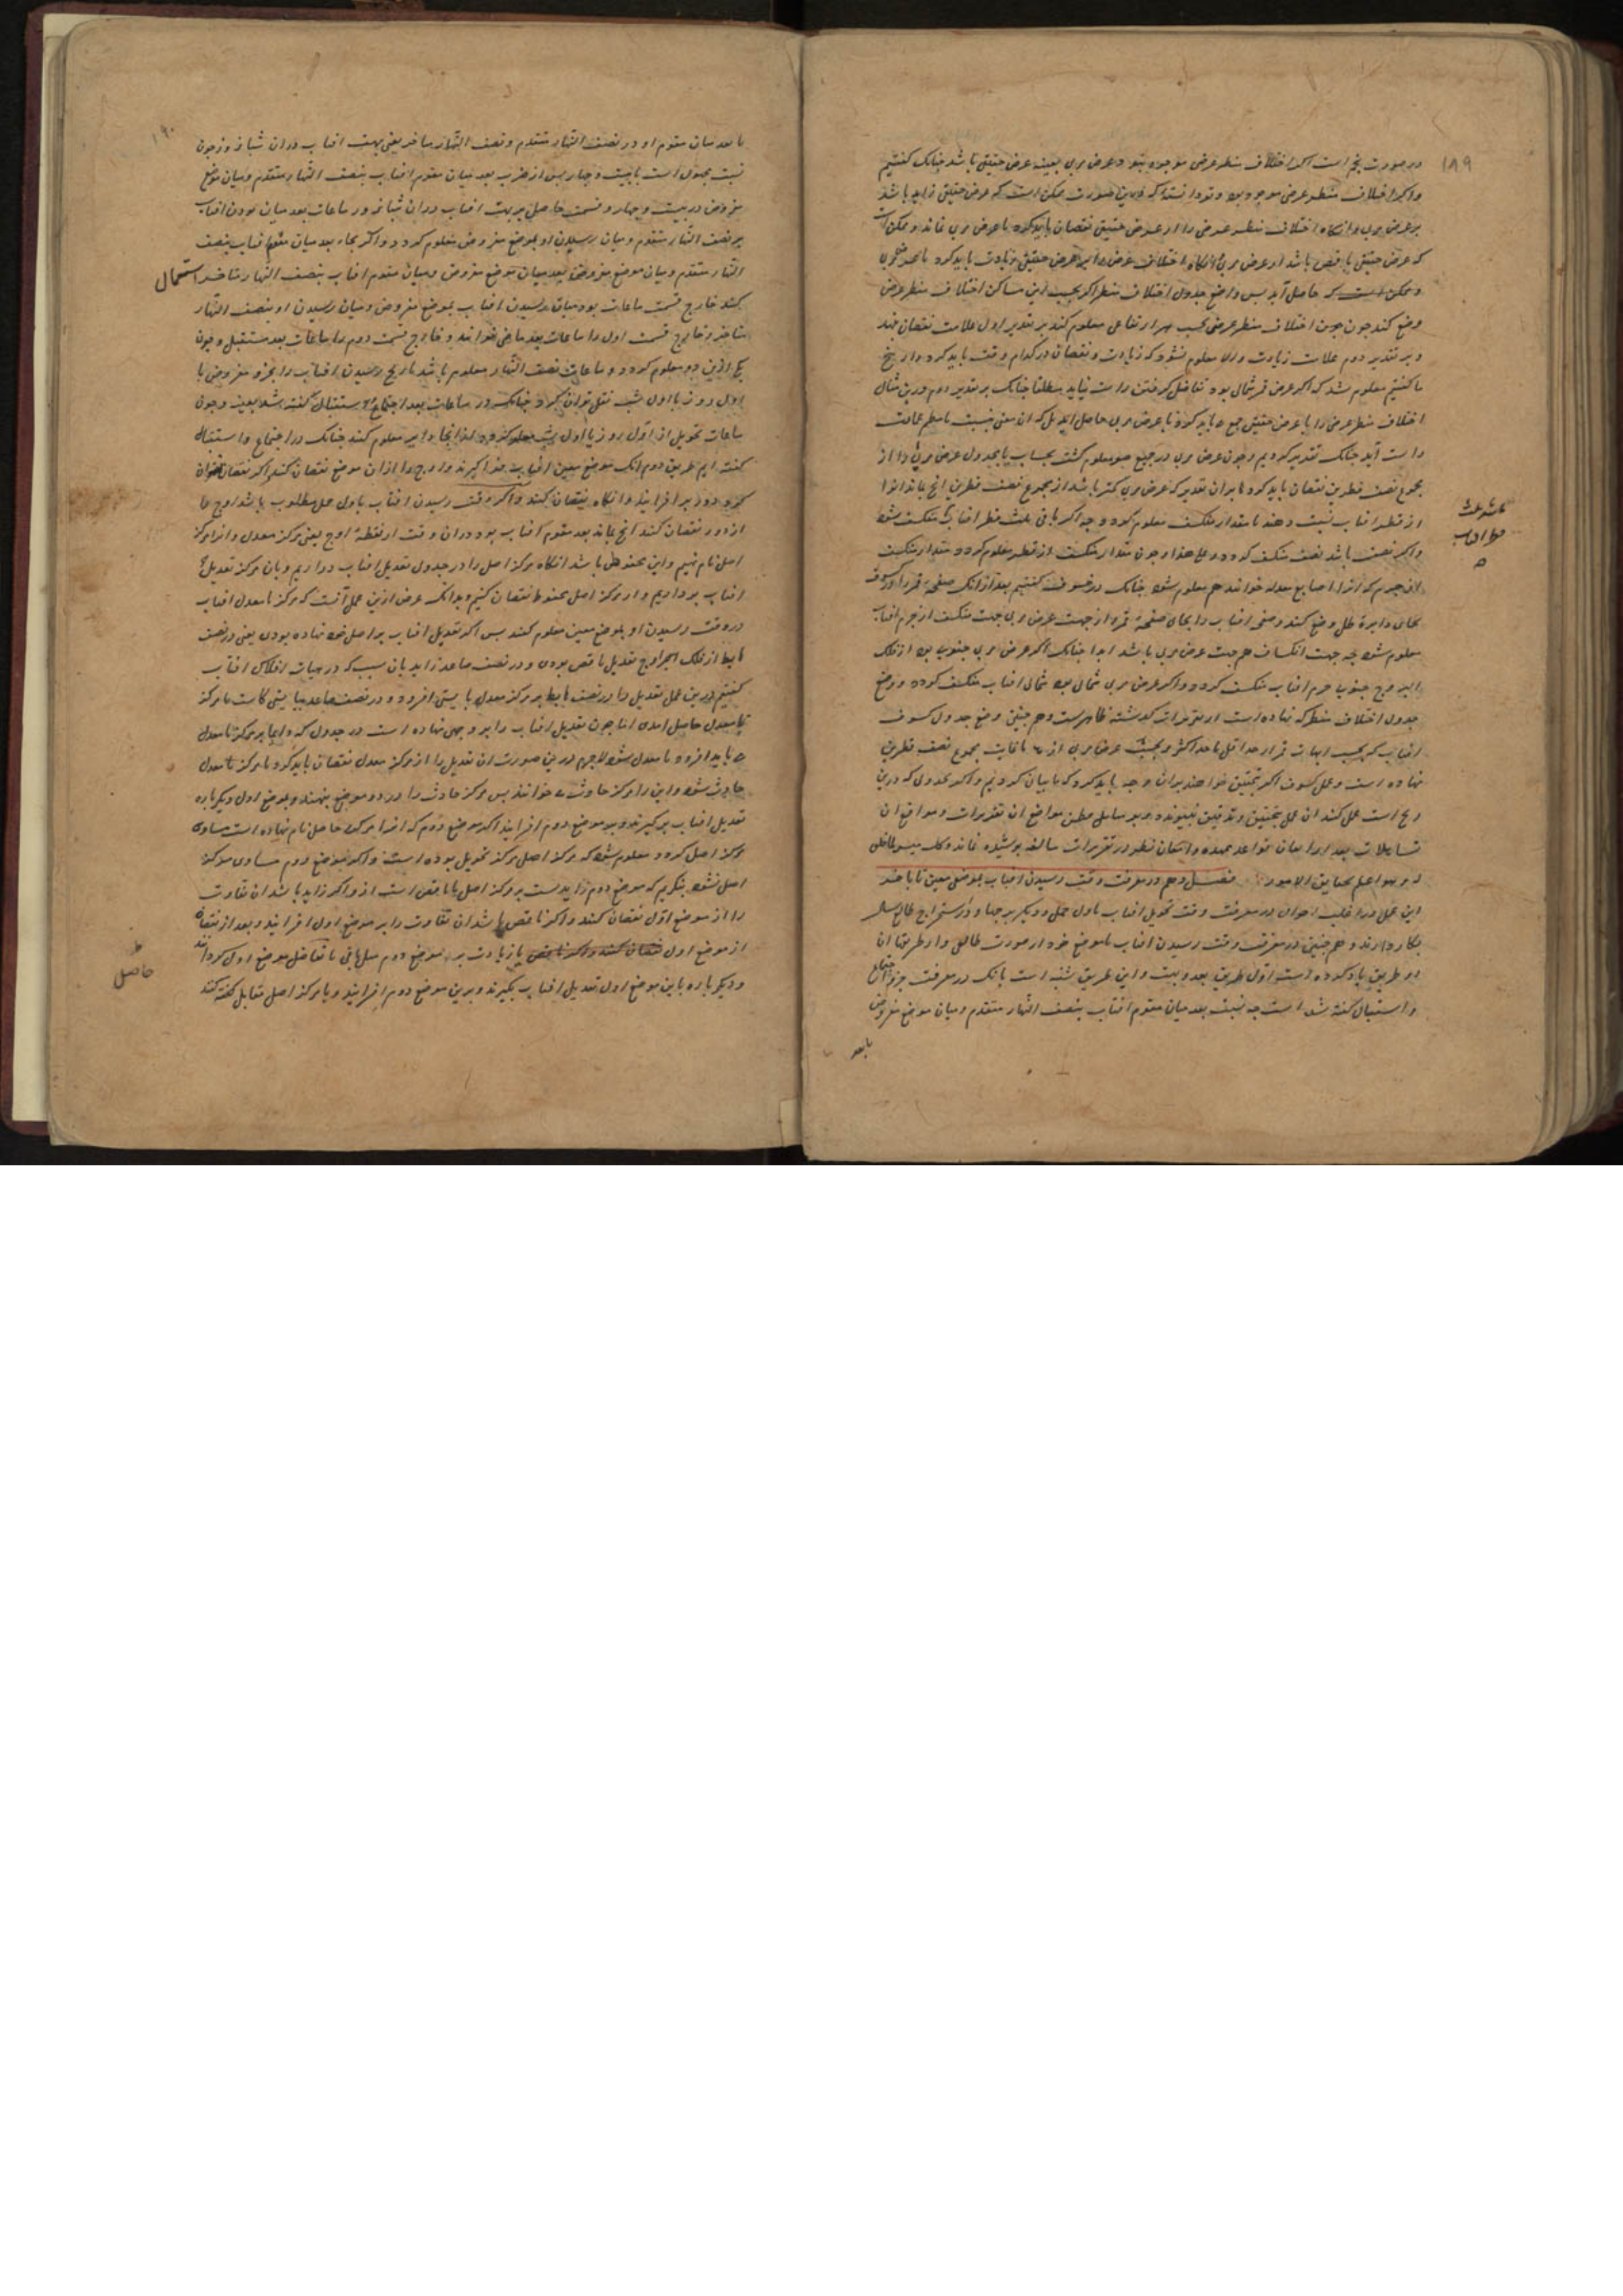 ۱۸۹
در صورت پنجم است اکر اختلاف منظر عرض موجود نبود عرض مری بعینه عرض حقیقی باشد چنانک کفتیم
واکر اختلاف منظر عرض موجود بود ممکن است که عرض حقیقی زاید باشد
بر عرض مری وانکاه اختلاف منظر عرض را از عرض حقیقی نقصان باید کرد تا عرض مری بماند وممکن است
که عرض حقیقی ناقص باشد از عرض مری وانکاه اختلاف عرض را بر عرض حقیقی زیادت باید کرد تا عرض مری
حاصل آید پس واضع جدول اختلاف منظر اکر بحسب این مساکن اختلاف منظر عرض
وضع کند چون اختلاف منظر عرض بحسب هر ارتفاعی معلوم کند بر تقدیر اول علامت نقصان نهد
وبر تقدیر دوم علامت زیادت والا معلوم نشود که زیادت ونقصان در کدام وقت باید کرد
ما کفتیم معلوم شد که اکر عرض قمر شمالی بود تفاضل کرفتن راست نیاید مطلقا چنانک بر تقدیر دوم درین مثال
اختلاف منظر عرض را با عرض حقیقی جمع باید کرد تا عرض مری حاصل آید
راست آید چنانک تقدیر کردیم وچون عرض مری در جمیع صور معلوم کشت بحساب یا بجدول عرض مری را از
مجموع نصف قطرین نقصان باید کرد بران تقدیر که عرض مری کمتر باشد از مجموع نصف قطرین انچ بماند انرا
از قطر افتاب نسبت دهند تا مقدار منکسف معلوم کردد چه اکر باقی ثلث قطر افتاب منکسف شود
واکر نصف باشد نصف منکسف کردد وعلی هذا وچون مقدار منکسف از قطر معلوم کردد مقدار منکسف
از جرم که انرا اصابع معدله خوانند هم معلوم شود چنانک در خسوف کفتیم بعد از انک صفحه قمر را در کسوف
بجای دایرۀ ظل وضع کنند وصفحه افتاب را بجای صفحۀ قمر واز جهت عرض مری جهت منکسف از جرم افتاب
معلوم شود چه جهت انکساف هم جهت عرض مری باشد ابدا چنانک اکر عرض مری جنوبی بود از فلک
البروج جنوب جرم افتاب منکسف کردد واکر عرض مری شمالی بود شمالی افتاب منکسف کردد ووضع
جدول اختلاف منظر که نهاده است از تقریرات کذشته ظاهرست وهم چنین وضع جدول کسوف
افتاب که بحسب ابعاد قمر از حد اقل تا حد اکثر وبحسب عرض مری از تا غایت مجموع نصف قطرین
نهاده است وعمل کسوف اکر بتحقیق خواهند بران وجه باید کرد که ما بیان کردیم واکر بجدولی که درین
زیج است عمل کنند ان عمل بتحقیق وتدقیق نپیوندد
تساهلات بعد از امعان نظر در تقریرات سالفه پوشیده نماند
والله اعلم بحقایق الامور فصل دهم در معرفت وقت رسیدن افتاب بموضعی معین
این عمل در اغلب احوال در معرفت وقت تحویل افتاب باول حمل ودیکر برجها ودر استخراج طالع
بکار دارند وهم چنین در معرفت وقت رسیدن افتاب بموضع خود از صورت طالعی واز طریقها ان
دو طریق یاد کرده است اول طریق بعد وبهت واین طریق شبیه است بانک در معرفت جزو اجتماع
واستقبال کفته شد است چه نسبت بعد میان مقوم افتاب بنصف النهار متقدم ومیان موضع مفروض
ثلث
قطر افتاب
با بعد
۱۹۰
با بعد میان مقوم او در نصف النهار متقدم ونصف النهار متاخر یعنی بهت افتاب دران شبانروز چون
نسبت مجهول است با بیست وچهار پس از ضرب بعد میان مقوم افتاب بنصف النهار متقدم ومیان موضع
مفروض در بیست وچهار وقسمت حاصل بر بهت افتاب دران شبانروز ساعات بعد میان بودن افتاب
بر نصف النهار متقدم ومیان رسیدن او بموضع مفروض معلوم کردد واکر بجاء بعد میان مقوم افتاب بنصف
النهار متقدم ومیان موضع مفروض بعد میان موضع مفروض ومیان مقوم افتاب بنصف النهار متاخر استعمال
کنند خارج قسمت ساعات بود میان رسیدن افتاب بموضع مفروض ومیان رسیدن او بنصف النهار
متاخر وخارج قسمت اول را ساعات بعد ماضی خوانند وخارج قسمت دوم را ساعات بعد مستقبل وچون
یکی ازین دو معلوم کردد وساعات نصف النهار معلوم باشد تاریخ رسیدن افتاب را بجزو مفروض با
اول روز یا اول شب نقل توان کرد چنانک در ساعات بعد اجتماع واستقبال کفته شد بعینه وچون
ساعات تحویل از اول روز یا اول شب معلوم کردد از انجا دایر معلوم کنند چنانک در اجتماع واستقبال
کفته ایم طریق دوم انک موضع معین افتاب فرا کیرند واوج را ازان موضع نقصان کنند اکر نقصان نتوان
کرد دور بر افزایند وانکاه نقصان کنند واکر وقت رسیدن افتاب باول حمل مطلوب باشد اوج را
از دور نقصان کنند انچ بماند بعد مقوم افتاب بود دران وقت از نقطۀ اوج یعنی مرکز معدل وانرا مرکز
اصل نام نهیم واین محفوظ باشد انکاه مرکز اصل را در جدول تعدیل افتاب در اریم وبان مرکز تعدیل
افتاب برداریم واز مرکز اصل محفوظ نقصان کنیم وبدانک غرض ازین عمل آنست که مرکز نامعدل افتاب
در وقت رسیدن او بموضع معین معلوم کنند پس اکر تعدیل افتاب بر اصل خود نهاده بودی یعنی در نصف
هابط از فلک اوج تعدیل ناقص بودی ودر نصف صاعد زاید بان سبب که در هیات افلاک افتاب
کفتیم درین عمل تعدیل را در نصف هابط بر مرکز معدل بایستی افزود ودر نصف صاعد ببایستی کاست تا مرکز
نامعدل حاصل امدی اما چون تعدیل افتاب را بر وجهی نهاده است در جدول که دایما بر مرکز نامعدل
باید افزود تا معدل شود لاجرم درین صورت ان تعدیل را از مرکز معدل نقصان باید کرد تا مرکز نامعدل
حادث شود واین را مرکز حادث خوانند پس مرکز حادث را در دو موضع بنهند وبموضع اول دیکر باره
تعدیل افتاب برکیرند وبر موضع دوم افزایند اکر موضع دوم که انرا مرکز حاصل نام نهاده است مساوی
مرکز اصل کردد معلوم شود که مرکز اصل مرکز تحویل بوده است واکر موضع دوم مساوی مرکز
اصل نشود بنکریم که موضع دوم زایدست بر مرکز اصل یا ناقص است ازو اکر زاید باشد ان تفاوت
را از موضع اول نقصان کنند واکر ناقص باشد ان تفاوت را بر موضع اول افزایند وبعد از نقصان
از موضع اول یا زیادت بر موضع دوم
ودیکر باره باین موضع اول تعدیل افتاب بکیرند وبرین موضع دوم افزایند وبا مرکز اصل مقابل کنند
حاصل